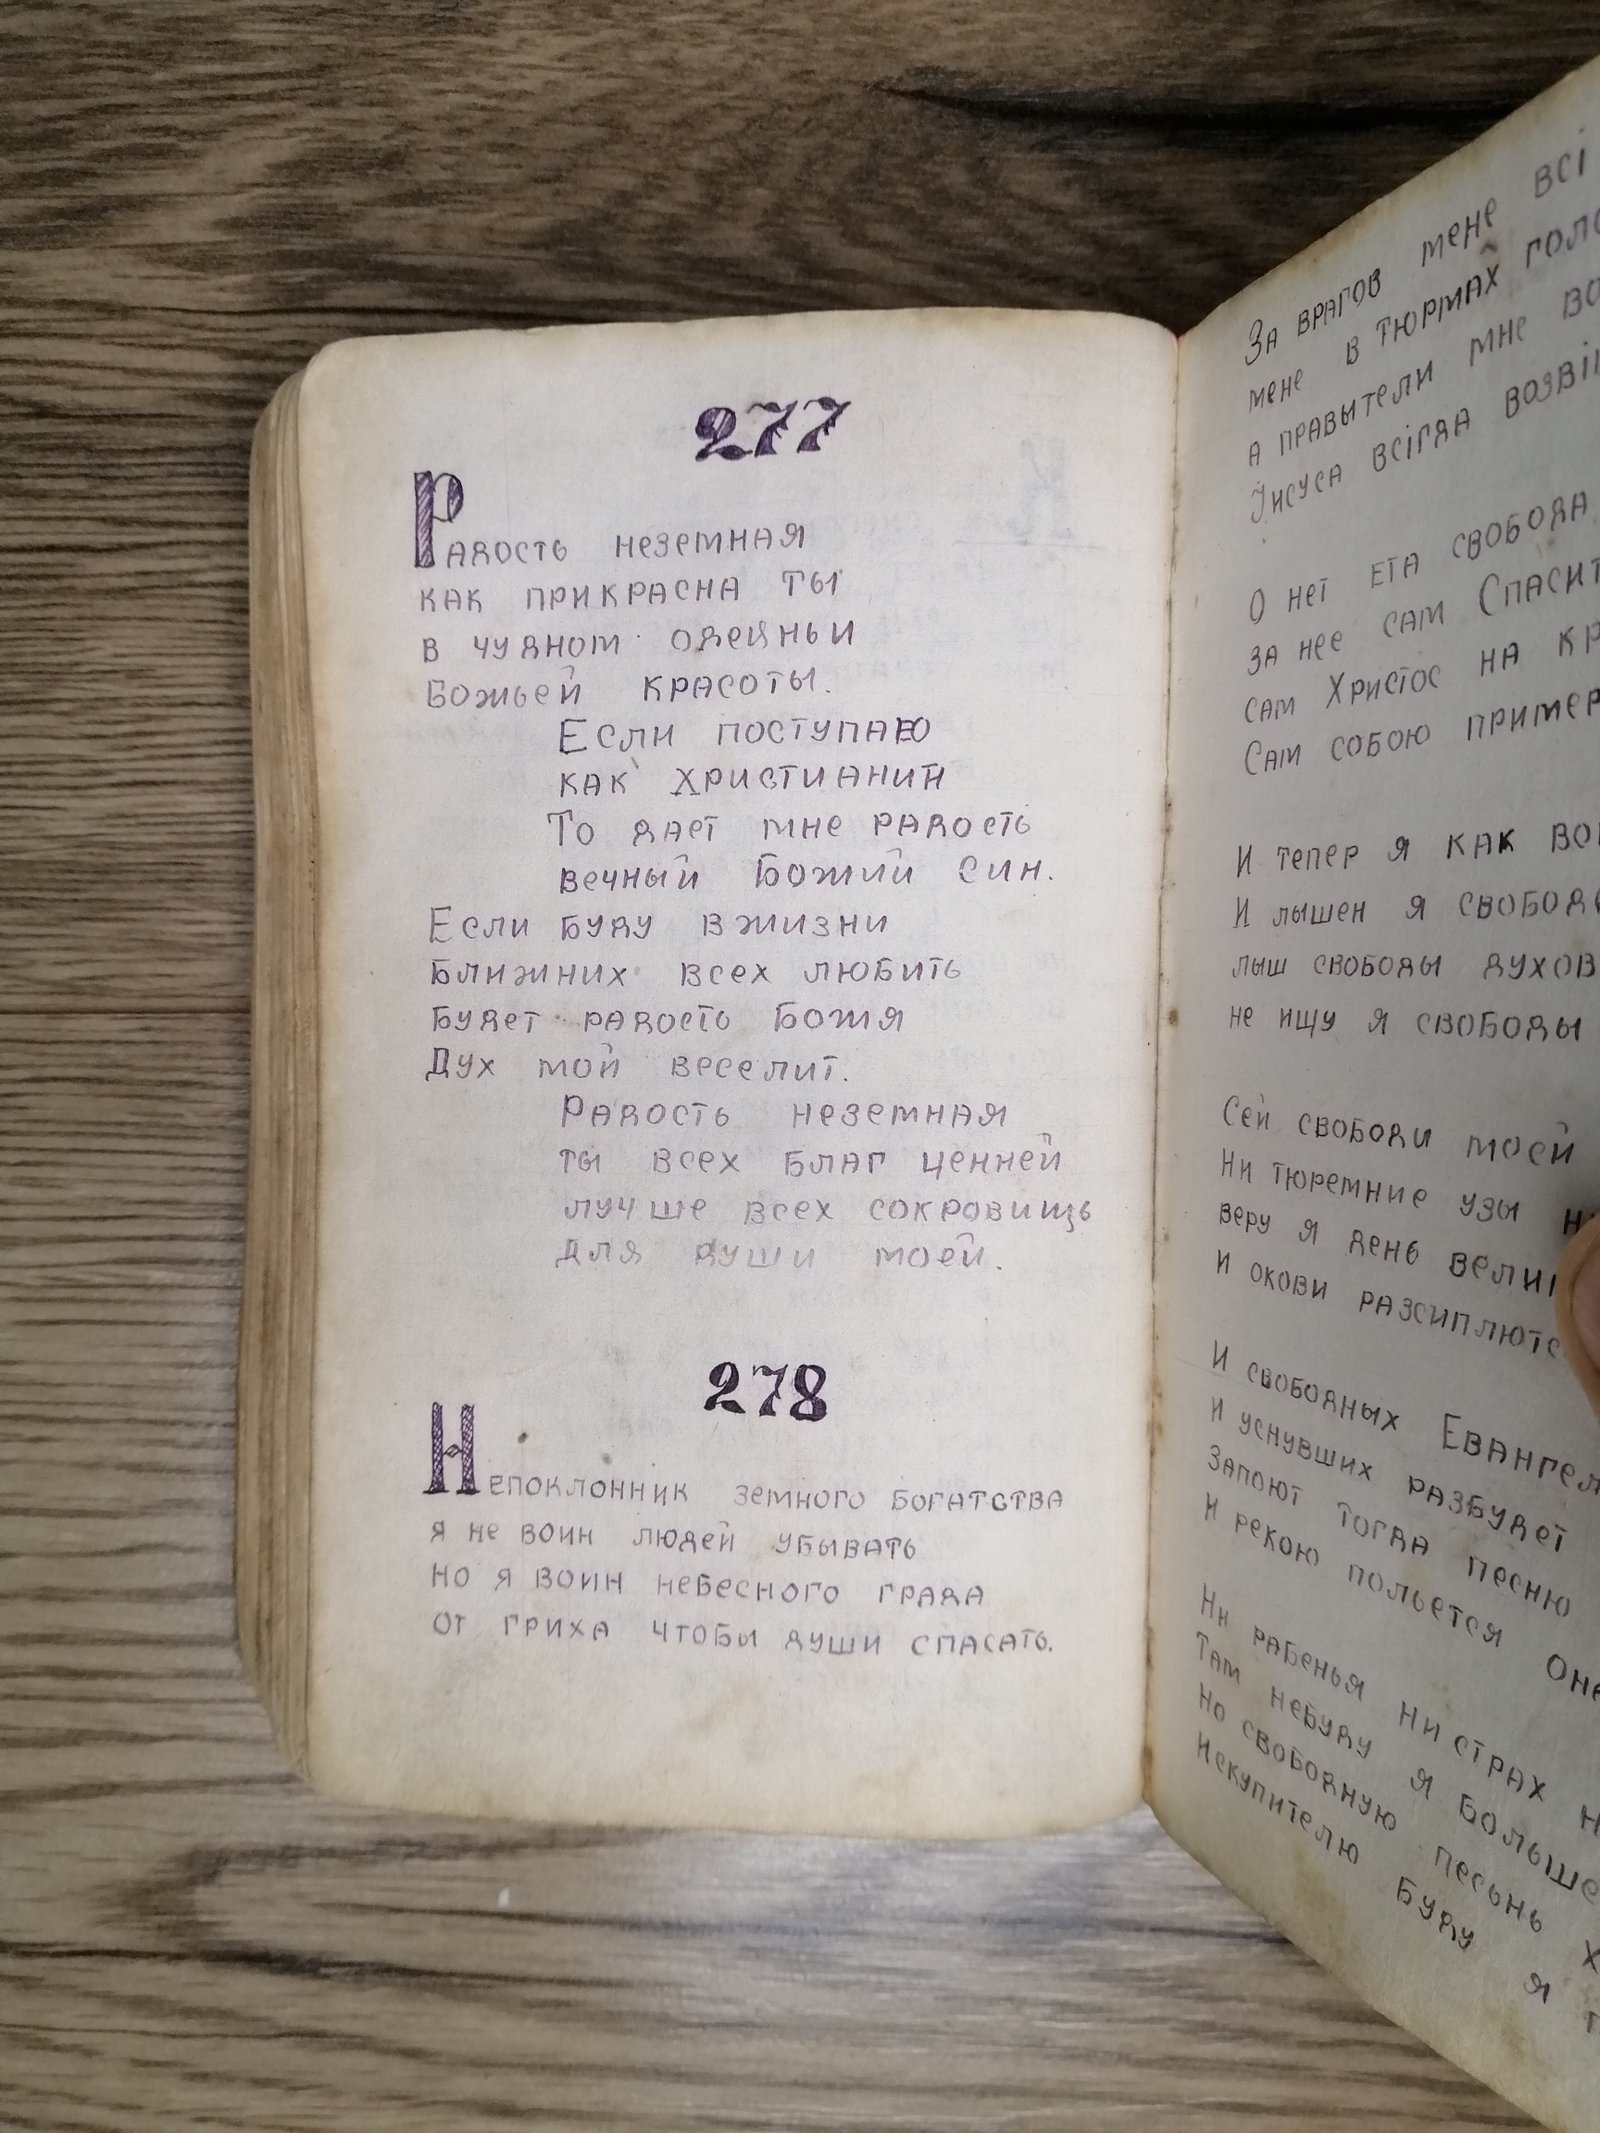 277
Радость неземная
как прикрасна ты
в чудном одеяньи
Божьей красоты.
Если поступаю
как Христианин
То дает мне радость
вечный Божий Син.
Если буду вжизни
Ближних всех любить
Будет радость Божя
Дух мой веселит.
Радость неземная
ты всех благ ценней
лучше всех сокровищь
для души моей.
278
Непоклонник земного богатства
я не воин людей убывать
но я воин небесного града
от гриха чтобы души спасать.
За врагов мене всі
мене в тюрмах
а правытели мне
Іисуса всігда
О нет ета свобода
за нее сам
сам Христос на
Сам собою
И тепер я как
И лышен я
лыш свободы
не ищу я свободы
Сей свободи моей
Ни тюремние узы
веру я день
и окови
И свободных
И уснувших разбудет
Запоют тогда песню
И рекою польется
Ни рабенья ни страх
Там небуду я больше
Но свободную песьнь
Искупителю буду я